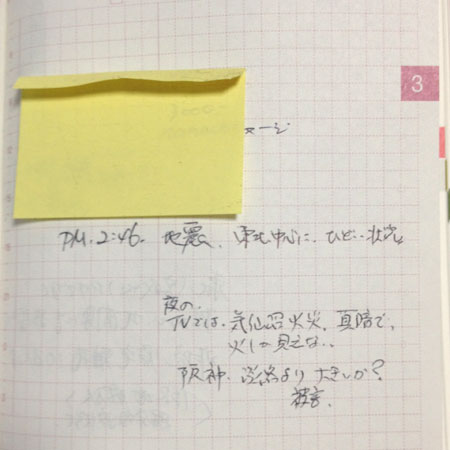 3
ージ
PM. 2:46. 地震、東北中心に、ひどい状況
夜の
TVでは、気仙沼火災、真暗で、
火しか見えない。
阪神・淡路より大きいか?
被害.